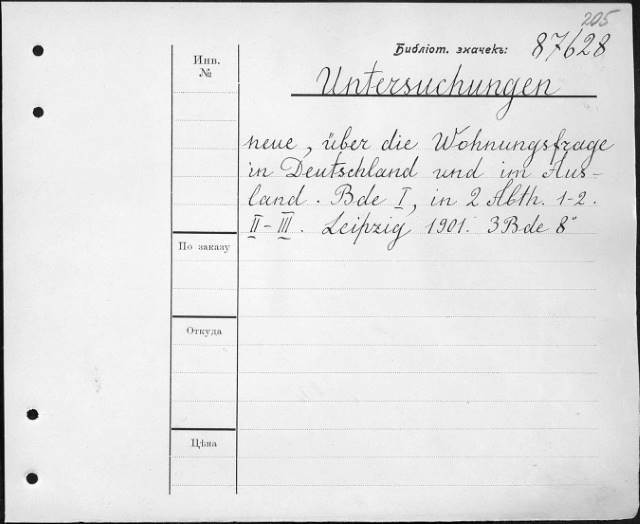 205
Библіот. значекъ: 87/628
Инв.
№
Untersuchungen
neue, über die Wohnungsfrage
in Deutschland und im Aus-
land. Bde I, in 2 Abth. 1-2.
II-III. Leipzig 1901. 3 Bde 8°
По заказу
Откуда
Цѣна